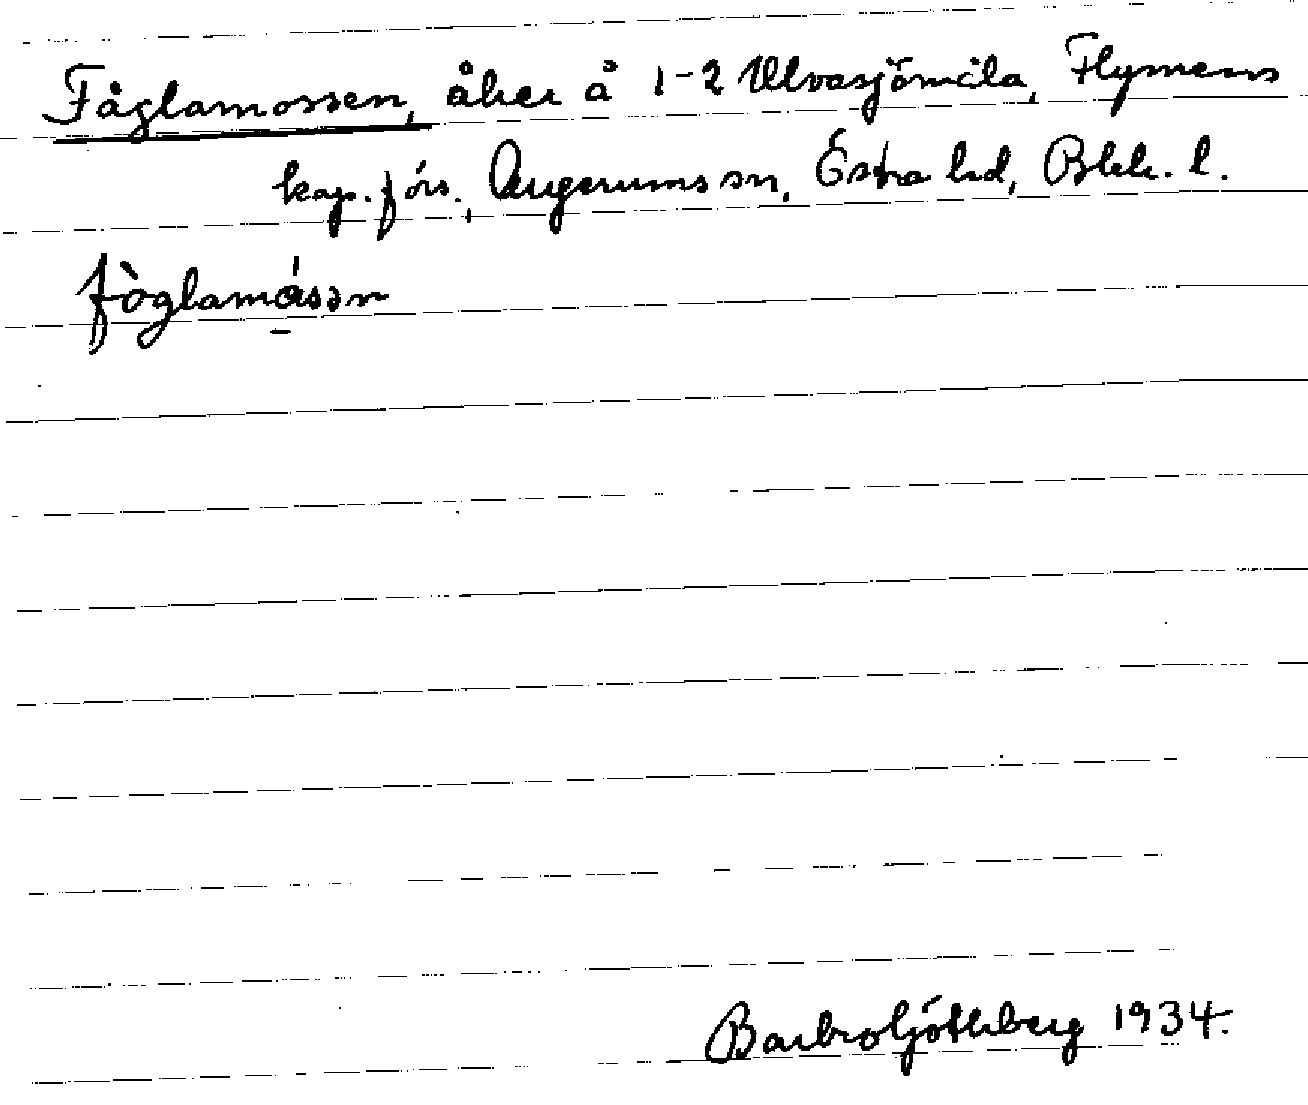 Fåglamossen, åker å 1-2 Ulvasjömåla, Flymens
kap. förs., Augerums sn, Östra hd, Blek. l.
fòglamɑ́sən
Barbro Göthberg 1934.